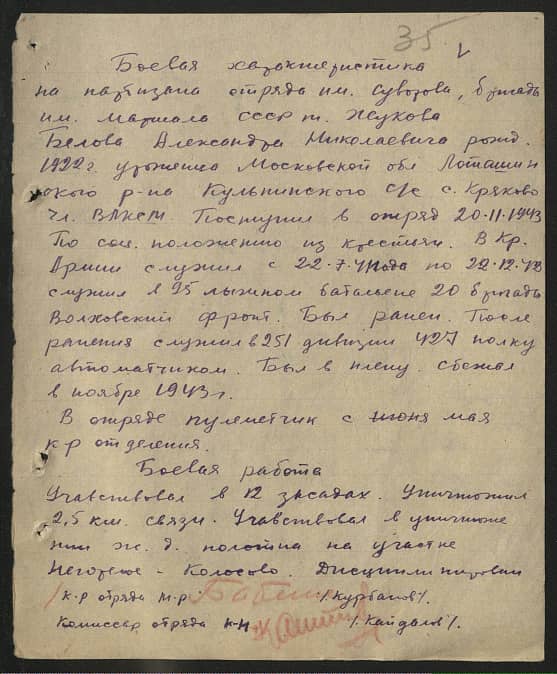 35
Боевая характеристика
на партизана отряда им. Суворова, бригады
им. маршала СССР т. Жукова
Белова Александра Николаевича рожд.
1922 г. уроженца Московской обл Лоташин
ского р-на Кульпинского с/с с. Кряково
Чл. ВЛКСМ. Поступил в отряд 20.11.1943
По соц. положению из крестьян. В Кр.
Армии служил с 22.7.41 года по 22.12.42
служил в 95 лыжном батальене 20 бригады
Волховский фронт. Был ранен. После
ранения служил в 251 дивизии 427 полку
автоматчиком. Был в плену. сбежал
в ноябре 1943 г.
В отряде пулеметчик с июня мая
к-р отделения.
Боевая работа
Учавствовал в 12 засадах. Уничтожил
2,5 км. связи. Учавствовал в уничтоже
нии ж.д. полотна на участке
Негорелое - Колосово. Дисциплинирован
к-р отряда м-р /Курбанов/.
Комиссар отряда к-н /Кайдалов/.